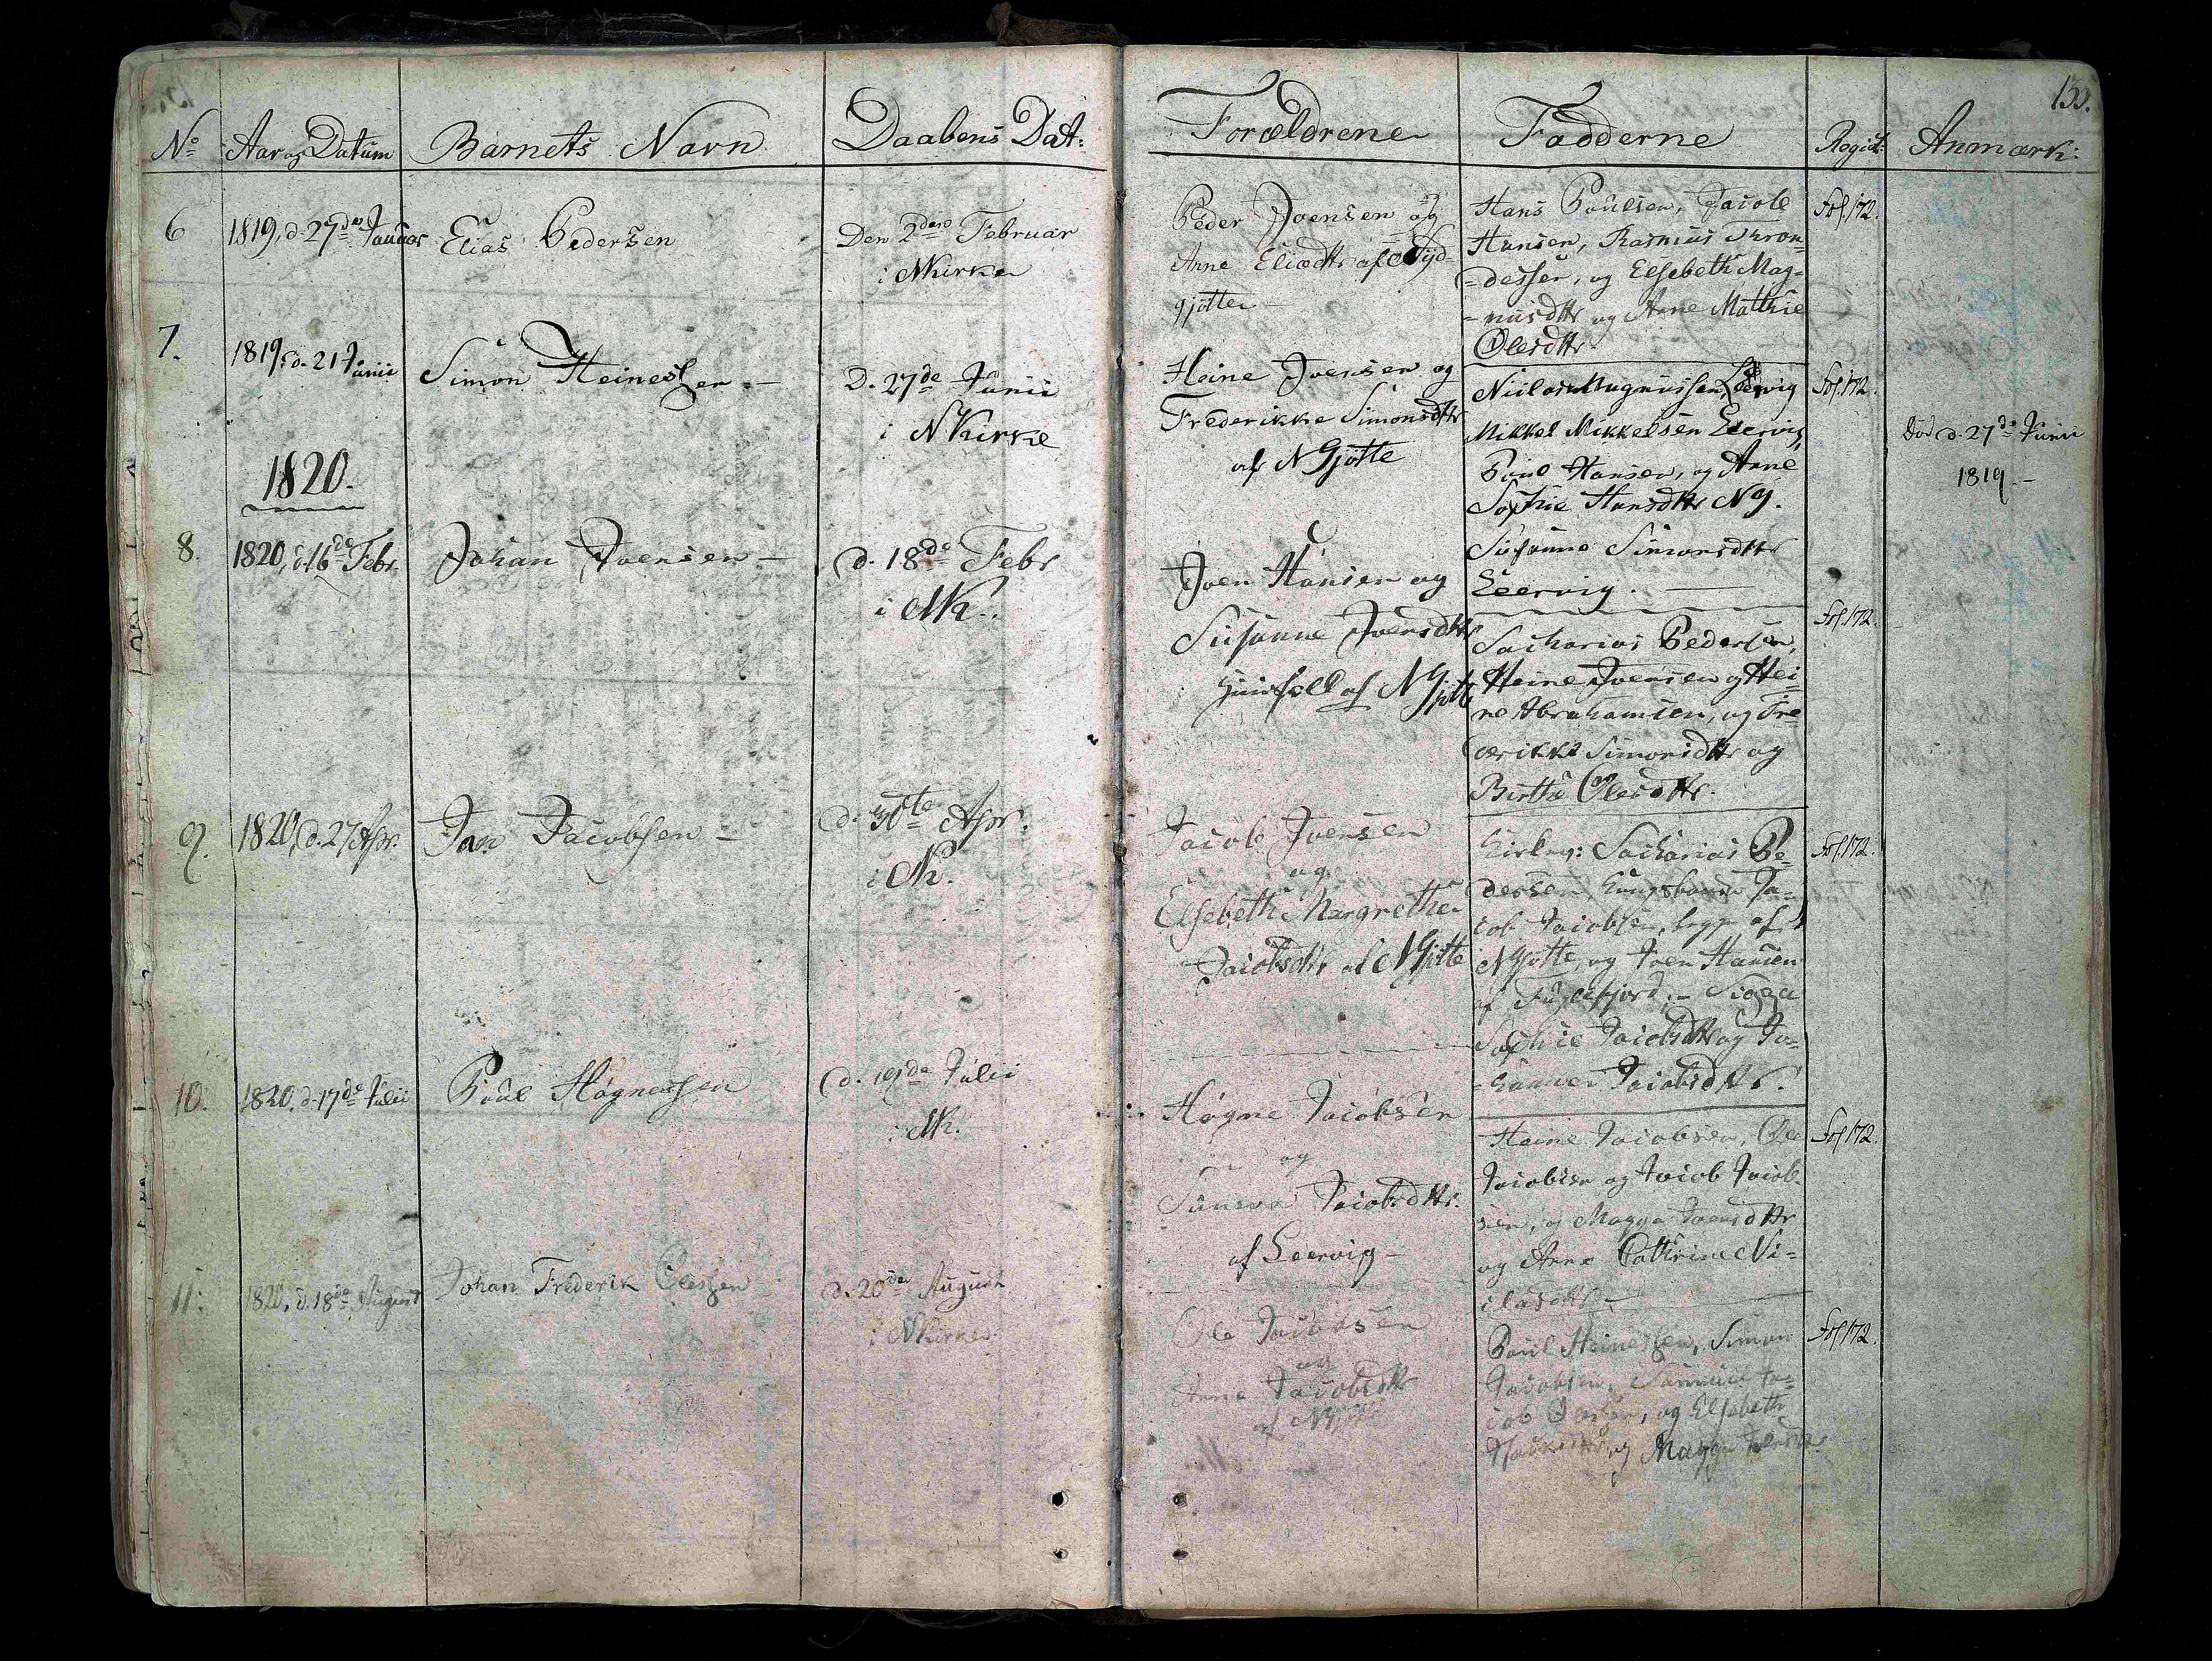 133.
No Aar og Datum Barnets Navn Daabens Dat: Forældrene Fadderne Regist: Anmærk:
6 1819, d. 27de Januar Elias Pedersen
Den 2den Februar
i NKirke
Peder Joensen og
Anne Eliædttr af Syd-
gjøtte
Hans Poulsen, Jacob
Hansen, Rasmus Thron-
=desser, og Elsebeth Mag-
-nusdttr og Anne Mathie
Olesdttr
Fol. 172.
7. 1819, d. 21 Junii Simon Heinesen
D. 27de Junii
i NKirke
Heine Joensen og
Frederikke Simonsdttr
af NGjøtte
Magnussen, Leervig
Mikkel Mikkelsen Leervig
Poul Hansen, og Anne
Sophie Hansdttr NG.
Susanne Simonsdttr
Leervig.
Fol. 172.
Død d. 27de Junii
1819.
1820.
8. 1820, d. 16de Febr. Johan Joensen
d. 18de Febr
i NK.
Joen Hansen og
Susanne Joensdttr
af NGjøtte
Sacharias Pedersen,
Heine Joensen og Hei-
ne Abrahamsen, og Fre-
derikke Simonsdttr og
Birtha Olesdttr.
Fol. 172.
9. 1820, d. 27 Apr. Jacobsen
d. 30te Apr.
i NK.
Jacob Joensen
og
Elsebeth Margrethe
Jacobsdttr af NGjøtte
Sacharias Pe-
dersen, Kongsbonde Ja-
cob Jacobsen, begge af
NGjøtte, og Joen Hansen
af Fuglefjord,
Sophie Jacobsdttr og Jo-
hanne Jacobsdttr.
Fol. 172.
10. 1820. d. 17de Julii Poul Høgnesen
d. 19de Julii
i NK.
Høgne Jacobsen
og
Sunneva Jacobsdttr.
af Leervig
Heine Jacobsen, Ole
Jacobsen og Jacob Jacob-
sen, og Magga Joensdttr
og Anne Cathrine Ni-
clasdttr
Fol. 172.
11. 1820, d. 18de August Johan Frederik Olesen
d. 20de August
i NKirke
Ole Jacobsen
og
Anne Jacobsdttr
af NGjøtte
Poul Heinesen, Simon
Jacobsen, Samuel Ja-
cob Olesen, og Elsebeth
og Magga
Fol. 172.